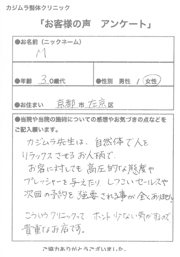 カジムラ整体クリニック
「お客様の声　アンケート」
●お名前(ニックネーム)
M
●年齢 30歳代
●性別 男性 / 女性
●お住まい 京都市左京区
●当院や当院の施術についての感想やお気づきの点などを
ご記入願います。
カジムラ先生は、自然体で人を
リラックスさせるお人柄で、
お客に対しても高圧的な態度や
プレッシャーを与えたり、しつこいセールスや
次回の予約を強要される事が全くありません。
こういうクリニックって ホント少ない気がするので
貴重なお店です。
ご協力ありがとうございました。